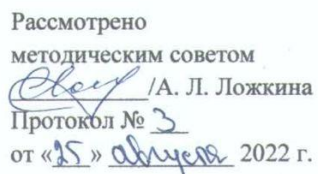 Рассмотрено
методическим советом
/А. Л. Ложкина
Протокол № 3
от «25» августа 2022 г.